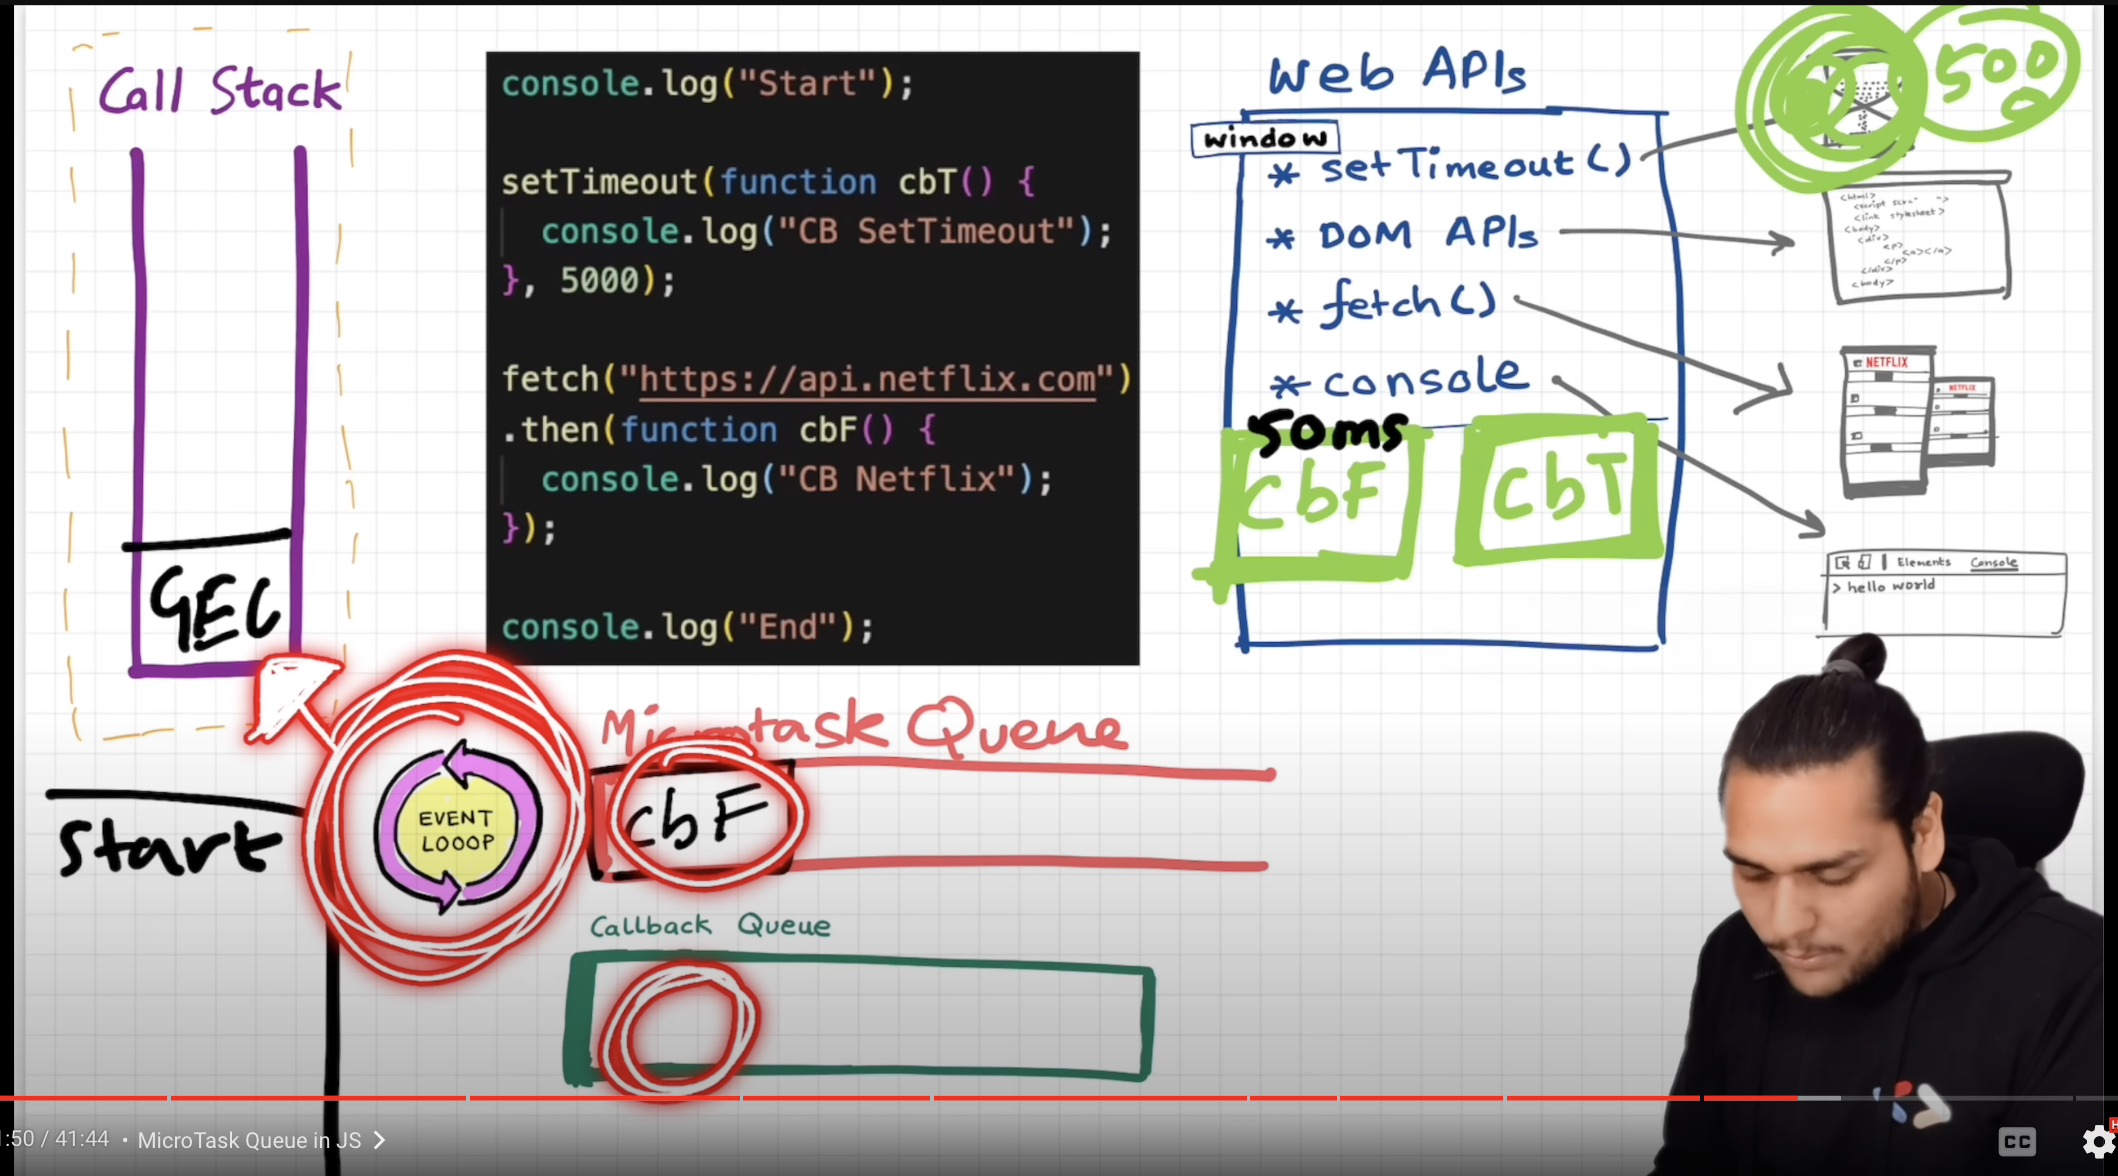 Call Stack
GEC
console.log("Start");
setTimeout(function cbT() {
console.log("CB SetTimeout");
}, 5000);
fetch("https://api.netflix.com")
.then(function cbF() {
console.log("CB Netflix");
});
console.log("End");
Web APIs
window
* setTimeout()
* DOM APIs
* fetch()
* console
50ms
CbF
CbT
5000
<html>
<body>
<div>
<p>
<a></a>
</p>
</div>
<body>
NETFLIX
NETFLIX
Elements Console
> hello world
Start
EVENT
LOOOP
Microtask Queue
cbF
Callback Queue
:50 / 41:44 • MicroTask Queue in JS >
CC